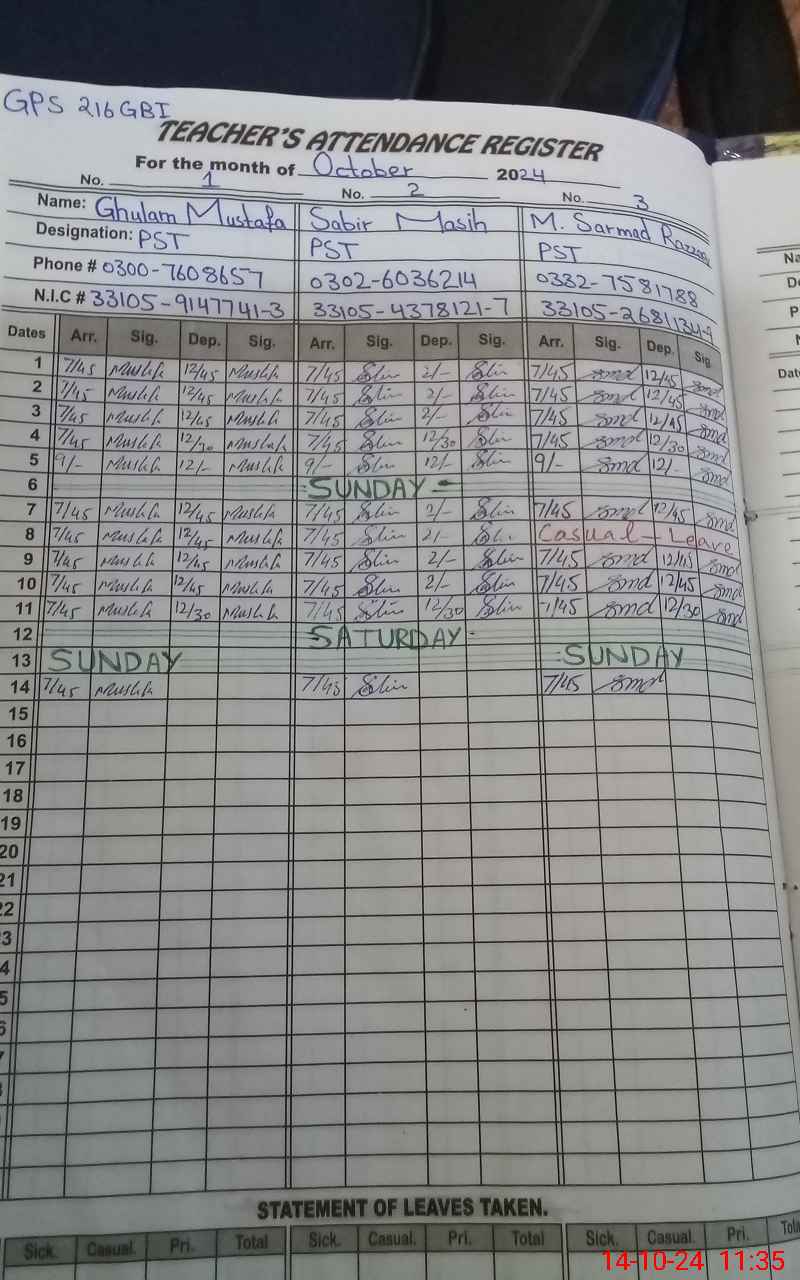 GPS 216 GBI
TEACHER'S ATTENDANCE REGISTER
For the month of October 2024
No. 1 No. 2 No. 3
Name: Ghulam Mustafa Sabir Masih M. Sarmad Razzaq
Designation: PST PST PST
Phone # 0300-7608657 0302-6036214 0332-7581788
N.I.C # 33105-9147741-3 33105-4378121-7 33105-2681134-9
Dates Arr. Sig. Dep. Sig. Arr. Sig. Dep. Sig. Arr. Sig. Dep. Sig
1 7/45 12/45 7/45 2/- 7/45 smd 12/45 smd
2 7/45 12/45 7/45 2/- 7/45 smd 12/45 smd
3 7/45 12/45 7/45 2/- 7/45 smd 12/45 smd
4 7/45 12/30 7/45 12/30 7/45 smd 12/30 smd
5 9/- 12/- 9/- 12/- 9/- smd 12/- smd
6 SUNDAY
7 7/45 12/45 7/45 2/- 7/45 smd 12/45 smd
8 7/45 12/45 7/45 2/- Casual - Leave
9 7/45 12/45 7/45 2/- 7/45 smd 12/45 smd
10 7/45 12/45 7/45 2/- 7/45 smd 12/45 smd
11 7/45 12/30 7/45 12/30 7/45 smd 12/30 smd
12 SATURDAY
13 SUNDAY SUNDAY
14 7/45 7/45 7/45 smd
15
16
17
18
19
20
21
22
3
4
5
6
STATEMENT OF LEAVES TAKEN.
Sick. Casual. Pri. Total Sick. Casual. Pri. Total Sick. Casual. Pri. Tota
14-10-24 11:35